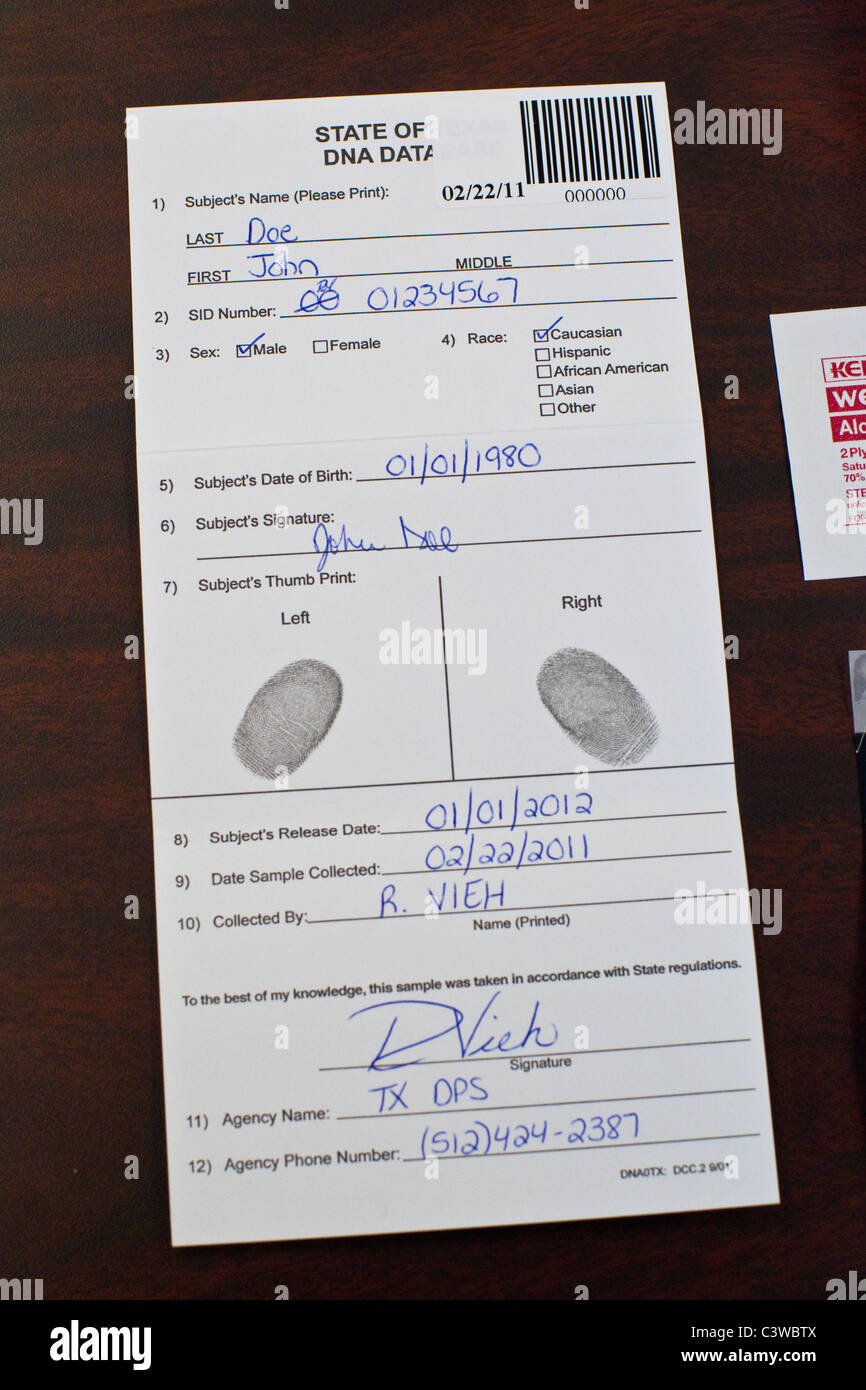 STATE OF TEXAS
DNA DATABASE
02/22/11
000000
1) Subject's Name (Please Print):
LAST Doe
FIRST John MIDDLE
2) SID Number: 01234567
3) Sex: Male Female 4) Race: Caucasian
Hispanic
African American
Asian
Other
5) Subject's Date of Birth: 01/01/1980
6) Subject's Signature:
John Doe
7) Subject's Thumb Print:
Left Right
8) Subject's Release Date: 01/01/2012
9) Date Sample Collected: 02/22/2011
10) Collected By: R. VIEH
Name (Printed)
To the best of my knowledge, this sample was taken in accordance with State regulations.
Signature
11) Agency Name: TX DPS
12) Agency Phone Number: (512)424-2387
DNA0TX: DCC.2 9/01
2 Ply
70%
alamy
Image ID: C3WBTX
www.alamy.com